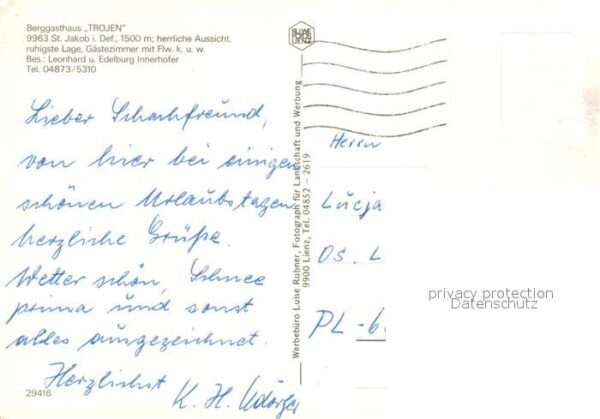 Berggasthaus „TROJEN"
9963 St. Jakob i. Def., 1500 m; herrliche Aussicht,
ruhigste Lage, Gästezimmer mit Flw. k. u. w.
Bes.: Leonhard u. Edelburg Innerhofer
Tel. 04873/5310
Lieber Schachfreund,
von hier bei einigen
schönen Urlaubstagen
herzliche Grüße.
Wetter schön, Schnee
prima und sonst
alles ausgezeichnet.
Herzlichst K. H.
29416
Werbebüro Luise Rubner, Fotograph für Landschaft und Werbung
9900 Lienz, Tel. 04852 - 2619
Herrn
Lucja
Os. L
PL - 6
privacy protection
Datenschutz